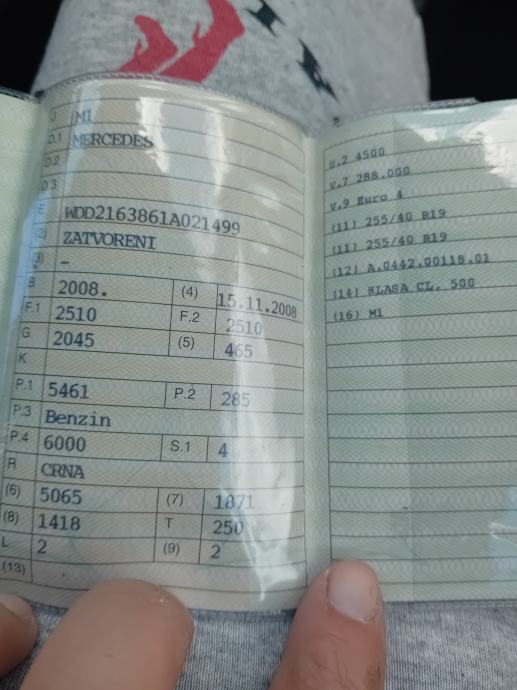 J M1
D.1 MERCEDES
D.2
D.3
E WDD2163861A021499
(2) ZATVORENI
(3) -
B 2008. (4) 15.11.2008
F.1 2510 F.2 2510
G 2045 (5) 465
K
P.1 5461 P.2 285
P.3 Benzin
P.4 6000 S.1 4
R CRNA
(6) 5065 (7) 1871
(8) 1418 T 250
L 2 (9) 2
(13)
U.2 4500
V.7 288.000
V.9 Euro 4
(11) 255/40 R19
(11) 255/40 R19
(12) A.0442.00118.01
(14) KLASA CL. 500
(16) M1